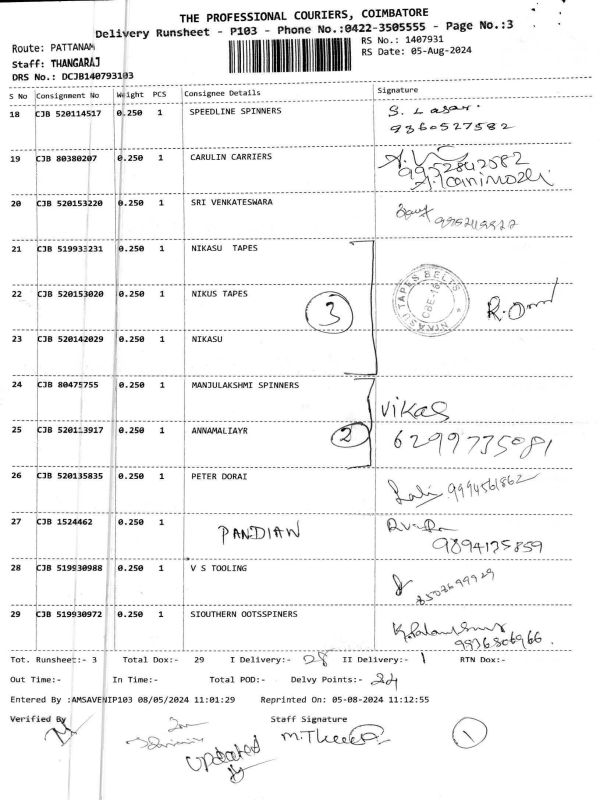 THE PROFESSIONAL COURIERS, COIMBATORE
Delivery Runsheet - P103 - Phone No.:0422-3505555 - Page No.:3
Route: PATTANAM
RS No.: 1407931
Staff: THANGARAJ
RS Date: 05-Aug-2024
DRS No.: DCJB140793103
S No Consignment No Weight PCS Consignee Details Signature
18 CJB 520114517 0.250 1 SPEEDLINE SPINNERS S. Lasar.
9360527582
19 CJB 80380207 0.250 1 CARULIN CARRIERS
9952842582
20 CJB 520153220 0.250 1 SRI VENKATESWARA
21 CJB 519933231 0.250 1 NIKASU TAPES
NIKASU TAPES BELTS
22 CJB 520153020 0.250 1 NIKUS TAPES 3
23 CJB 520142029 0.250 1 NIKASU
24 CJB 80475755 0.250 1 MANJULAKSHMI SPINNERS
Vikas
25 CJB 520113917 0.250 1 ANNAMALIAYR 2 6299735081
26 CJB 520135835 0.250 1 PETER DORAI 9994561862
27 CJB 1524462 0.250 1 PANDIAN
9894125859
28 CJB 519930988 0.250 1 V S TOOLING
29 CJB 519930972 0.250 1 SIOUTHERN OOTSSPINERS
9936806966.
Tot. Runsheet:- 3 Total Dox:- 29 I Delivery:- 28 II Delivery:- 1 RTN Dox:-
Out Time:- In Time:- Total POD:- Delvy Points:- 24
Entered By :AMSAVENIP103 08/05/2024 11:01:29 Reprinted On: 05-08-2024 11:12:55
Verified By Staff Signature
Updated
1